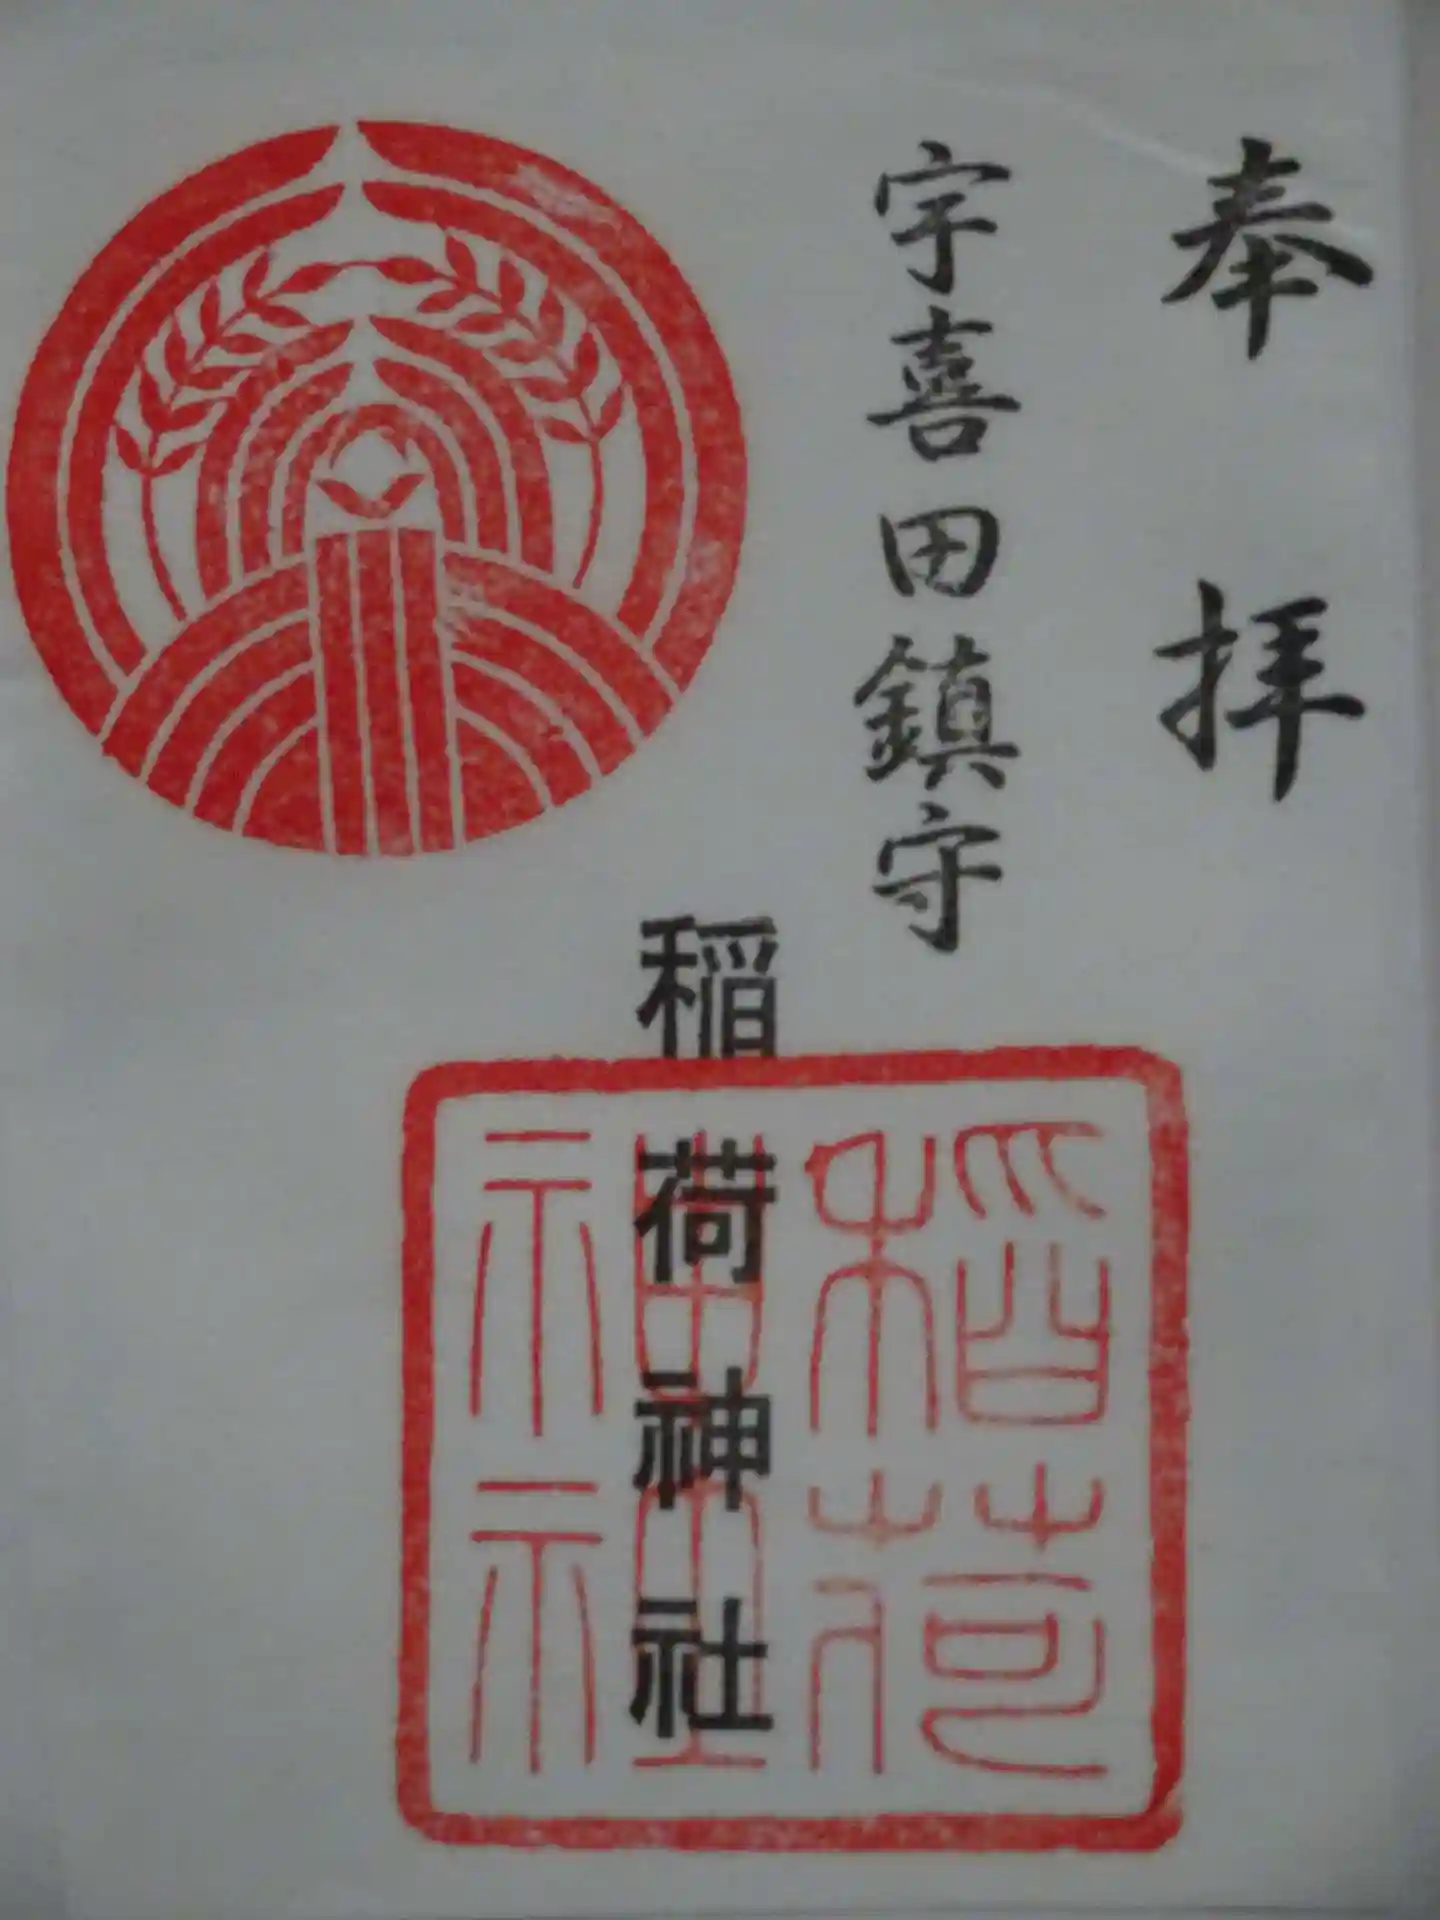 奉拝
宇喜田鎮守
稲荷神社
稲荷神社